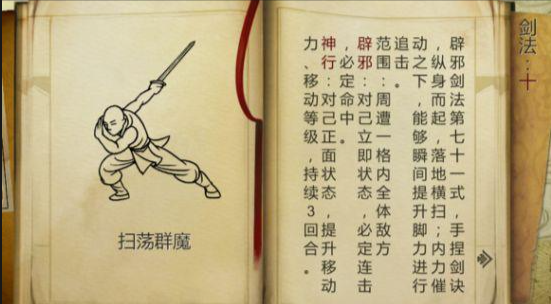 剑法：十
辟邪剑法第七十一式；手捏剑诀
，纵身而起，落地横扫，内力催
动之下，能够瞬间提升脚力进行
追击。
范围：周遭一格内全体敌方
辟邪：对己立即状态，必定连击
，必定命中。
神行：对己正面状态，提升移动
力、移动等级，持续3回合。
扫荡群魔